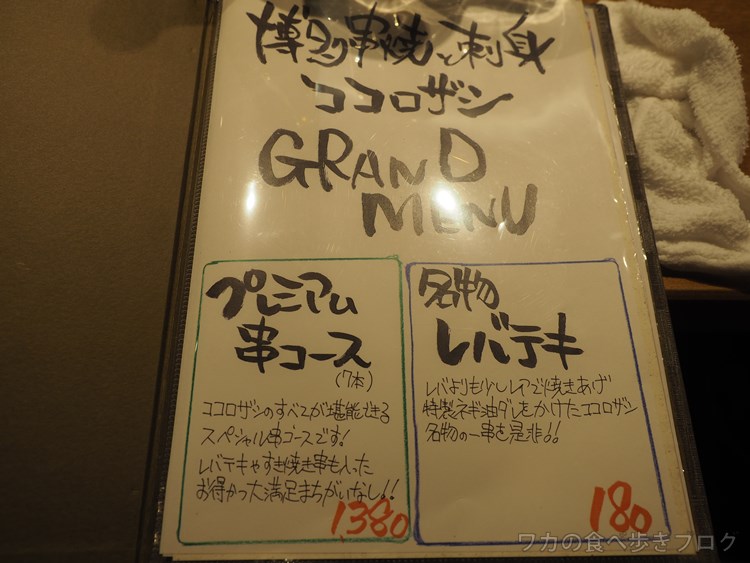 博多串焼と刺身
ココロザシ
GRAND
MENU
プレミアム
串コース
(7本)
ココロザシのすべてが堪能できる
スペシャル串コースです!
レバテキやすき焼き串も入った
お得かつ大満足まちがいなし!!
1380
名物
レバテキ
レバよりも少しレアで焼きあげ
特製ネギ油ダレをかけたココロザシ
名物の一串を是非!!
180
ワカの食べ歩きブログ